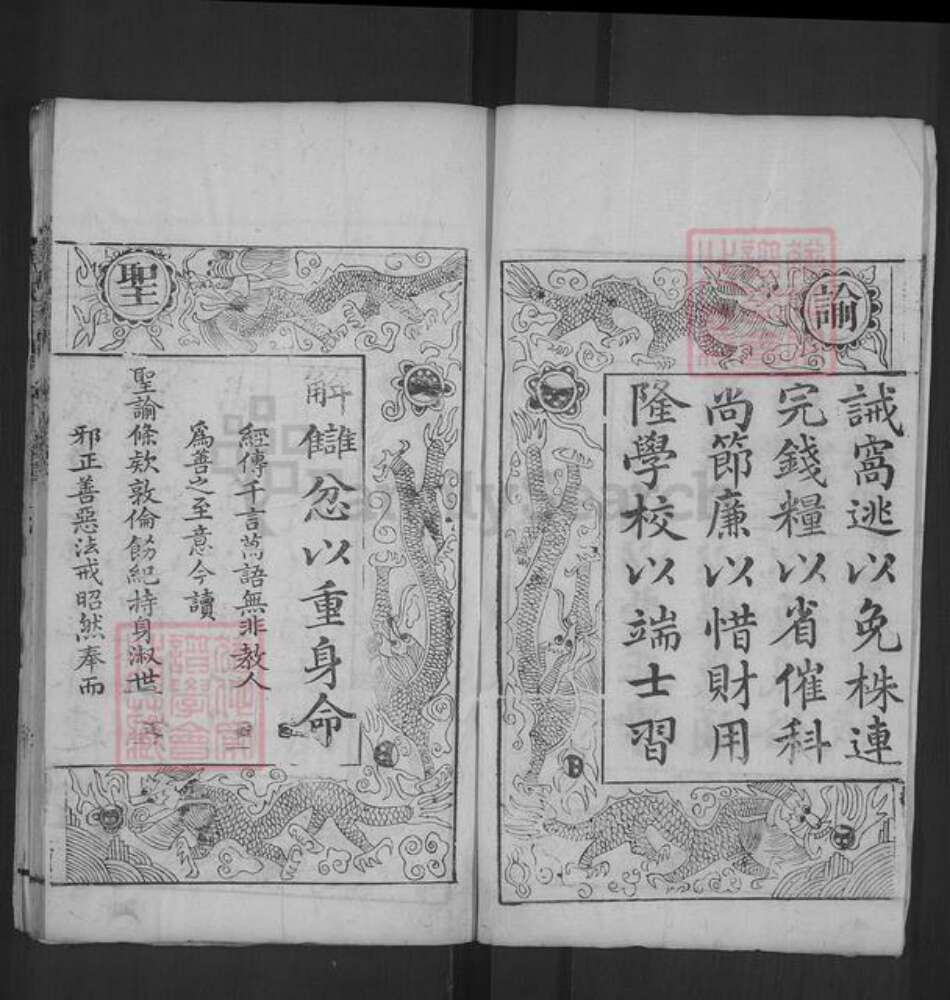 諭
誡窩逃以免株連
完錢糧以省催科
尚節廉以惜財用
隆學校以端士習
聖
解讎忿以重身命
經傳千言萬語無非教人
為善之至意今讀
聖諭條欵敦倫飭紀持身淑世
邪正善惡法戒昭然奉而